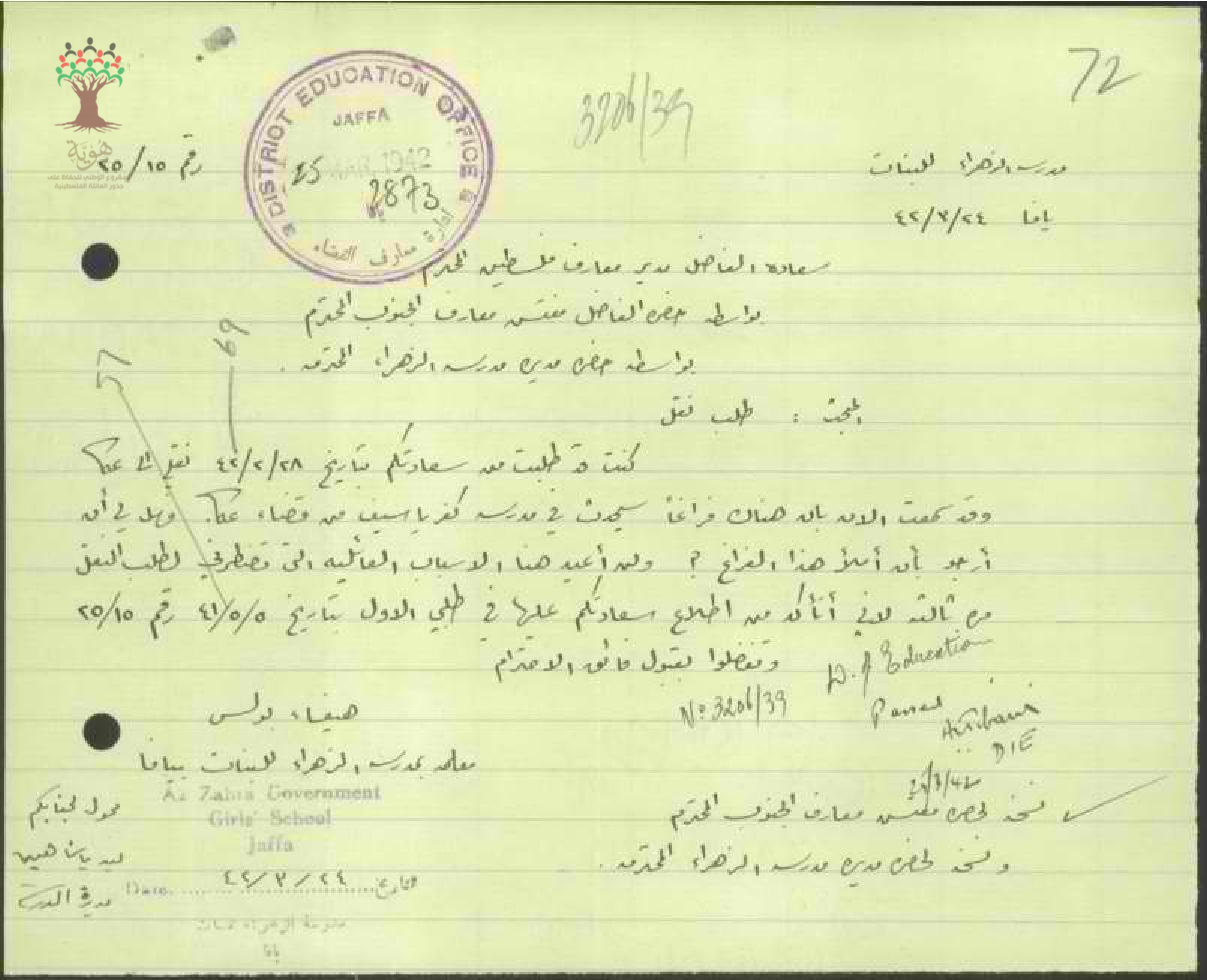 72
3206/39
هوية
DISTRICT EDUCATION OFFICE
JAFFA
25 MAR. 1942
2873
يافا
إدارة معارف القضاء
رقم ٢٥/١٥
مدرسة الزهراء للبنات
يافا ٤٢/٣/٢٤
سعادة الفاضل مدير معارف فلسطين المحترم
بواسطة حضرة الفاضل مفتش معارف الجنوب المحترم
بواسطة حضرة مديرة مدرسة الزهراء المحترمه .
69
57
المبحث : طلب نقل
كنت قد طلبت من سعادتكم بتاريخ ٤٢/٢/٢٨ نقلي الى عكا
وقد سمعت الان بان هناك فراغاً سيحدث في مدرسة كفر ياسيف من قضاء عكا. فهل لي أن
أرجو بأن أملأ هذا الفراغ ؟ ولن أعيد هنا الاسباب العائليه التي تضطرني لطلب النقل
مرة ثالثة لاني أتأكد من اطلاع سعادتكم عليها في طلبي الاول بتاريخ ٤١/٥/٥ رقم ٢٥/١٥
وتفضلوا بقبول فائق الاحترام
D. of Education
No 3206/39
Passed
DIE
25/3/42
هيفاء بولس
معلمة بمدرسة الزهراء للبنات بيافا
Az Zahra Government
Girls' School
Jaffa
Date ........ التاريخ ٤٢/٣/٢٤
مدرسة الزهراء للبنات
يافا
محول لجنابكم
مديرة المدرسة
نسخة لحضرة مفتش معارف الجنوب المحترم
ونسخة لحضرة مديرة مدرسة الزهراء المحترمه .